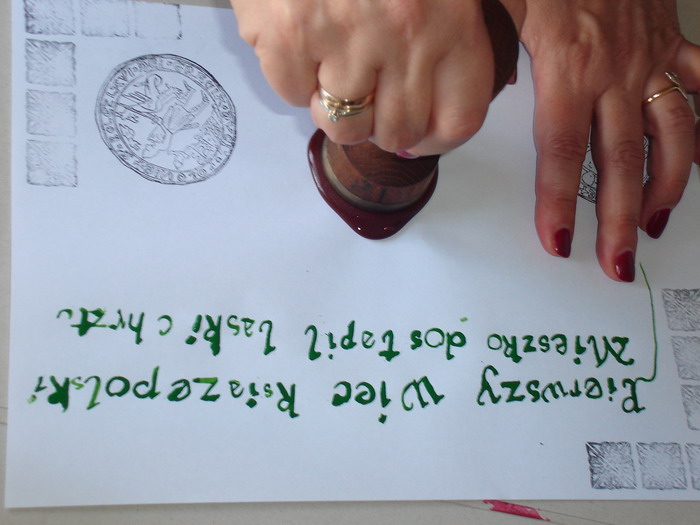 Pierwszy wiec Ksiaze polski
Mieszko dostapil laski chrztu